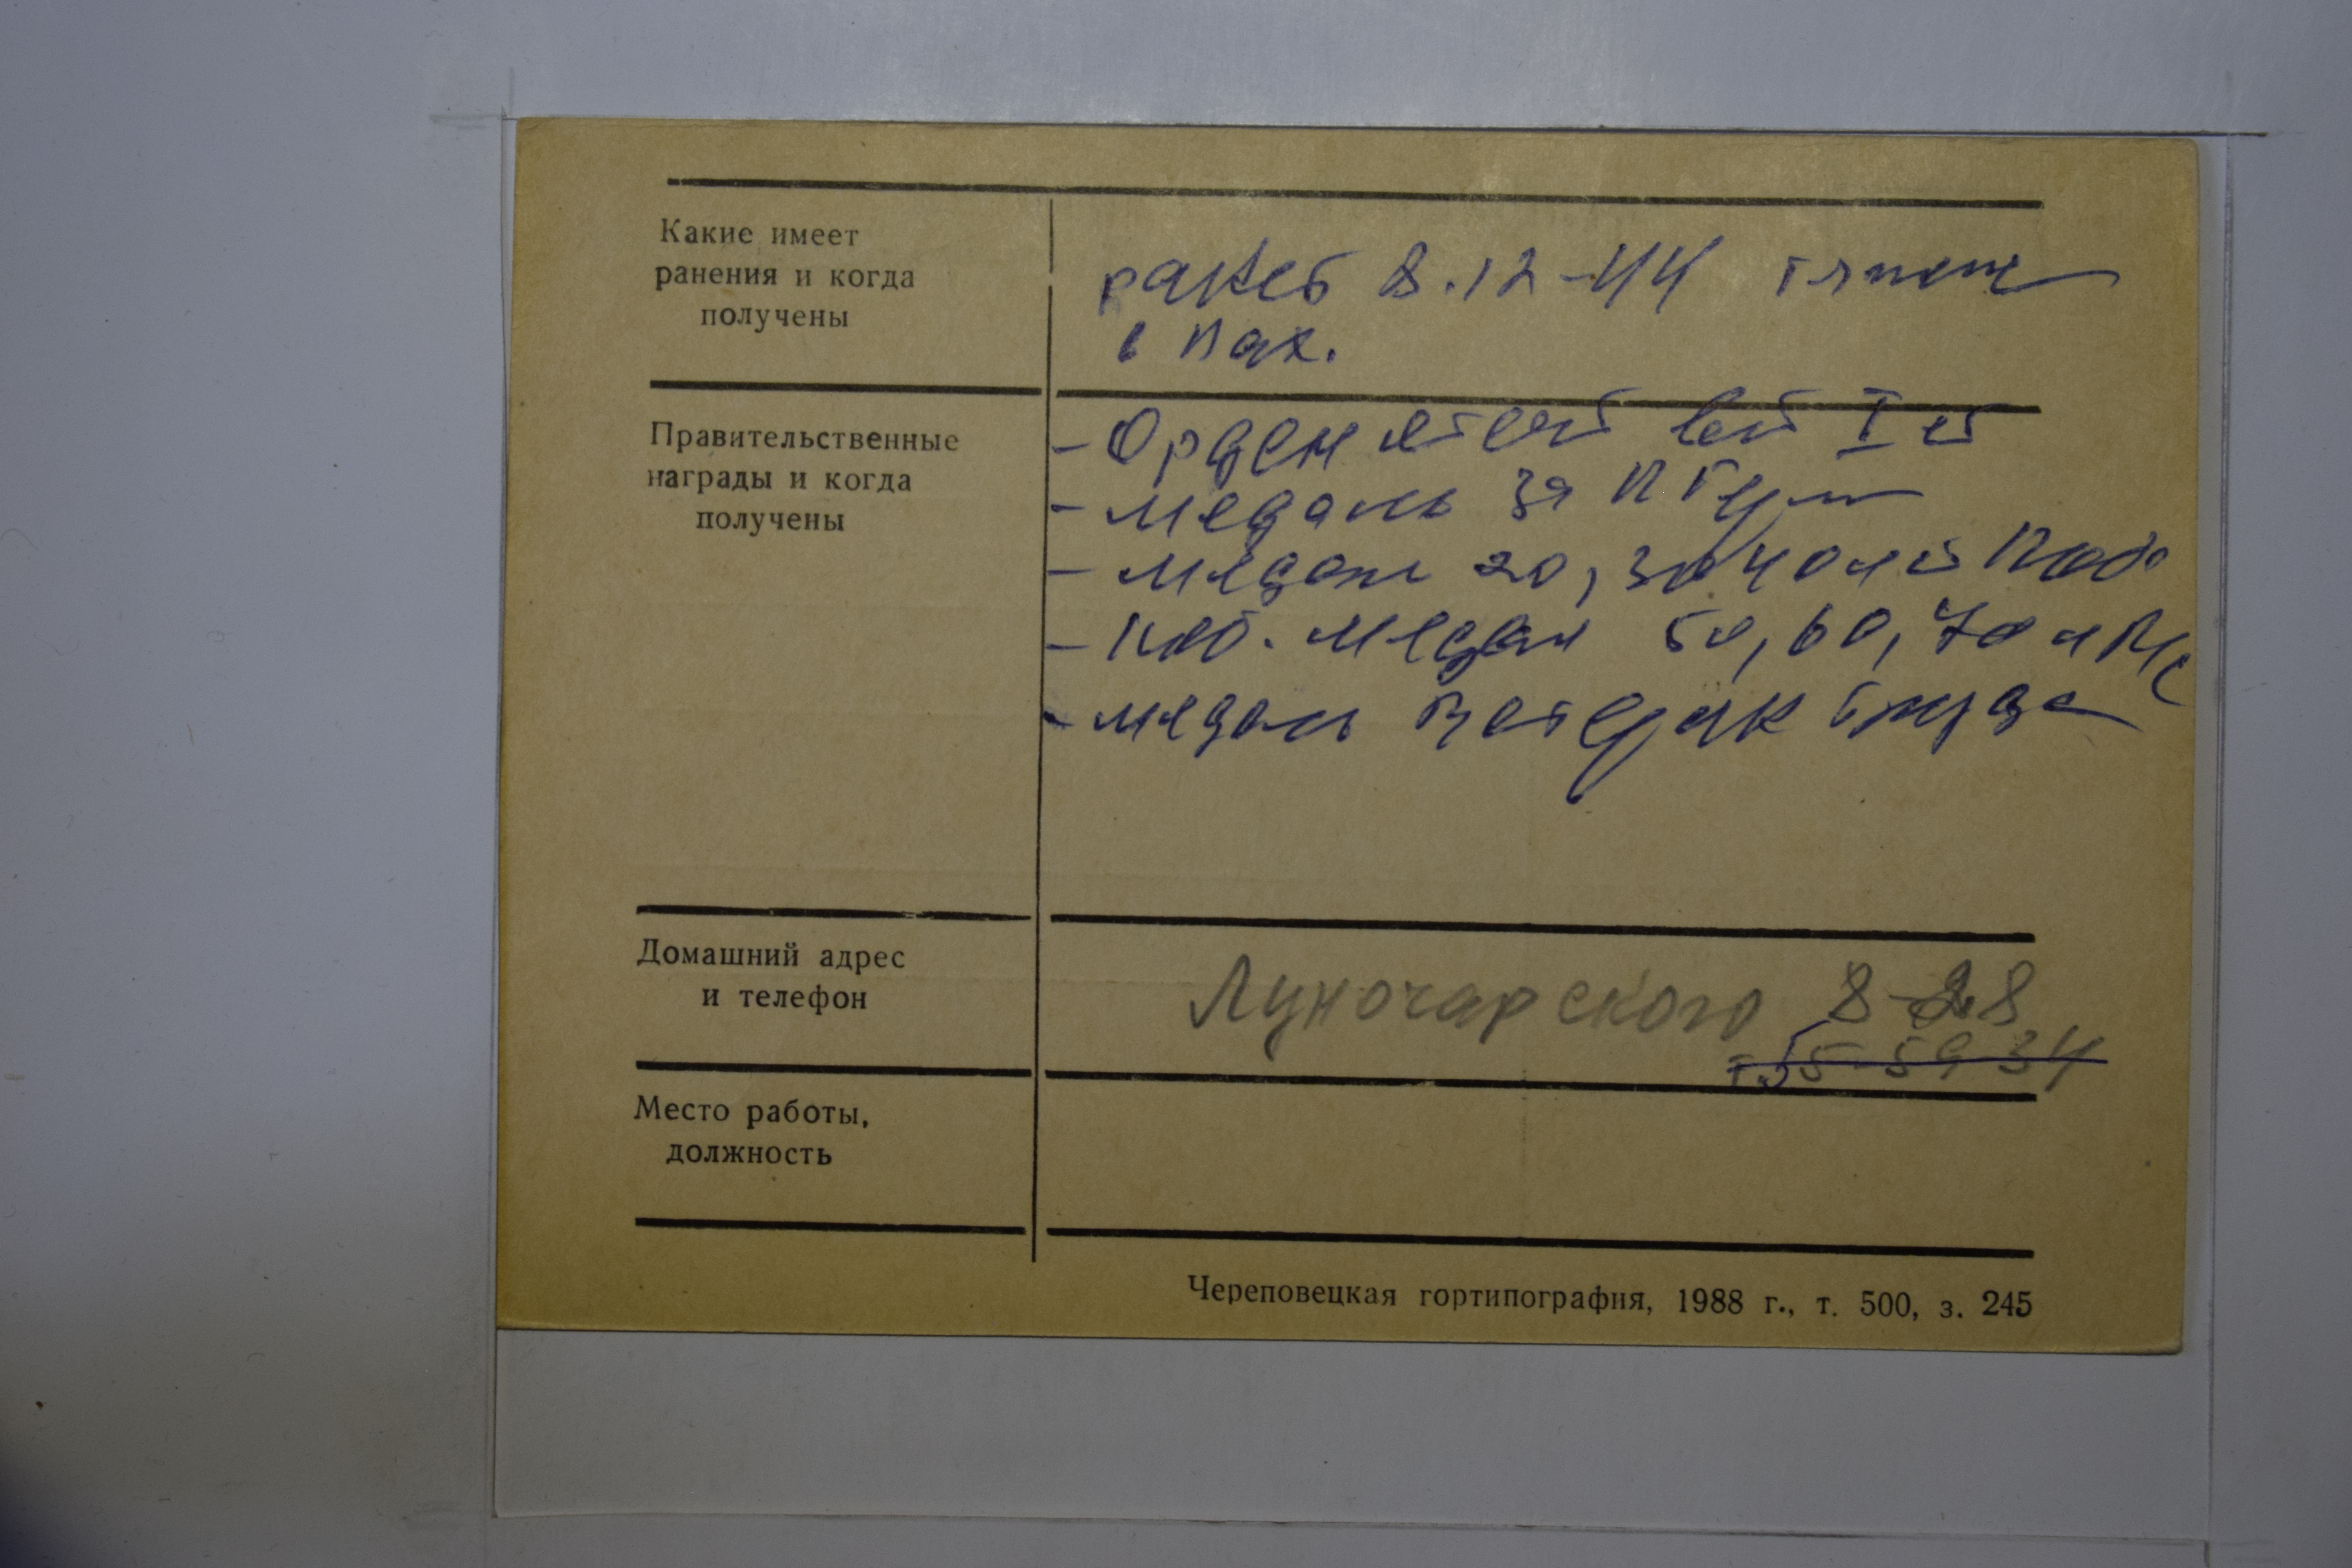 Какие имеет
ранения и когда
получены
ранен 8.12-44 тяжело
в пах.
Правительственные
награды и когда
получены
- Орден Отеч I ст
- медаль за
- медали 20, 30 40 лет Поб
- юб. медали 50, 60, 70 л
- медаль Ветеран труда
Домашний адрес
и телефон
Луночарского 8-28
т. 55-59-34
Место работы,
должность
Череповецкая гортипография, 1988 г., т. 500, з. 245